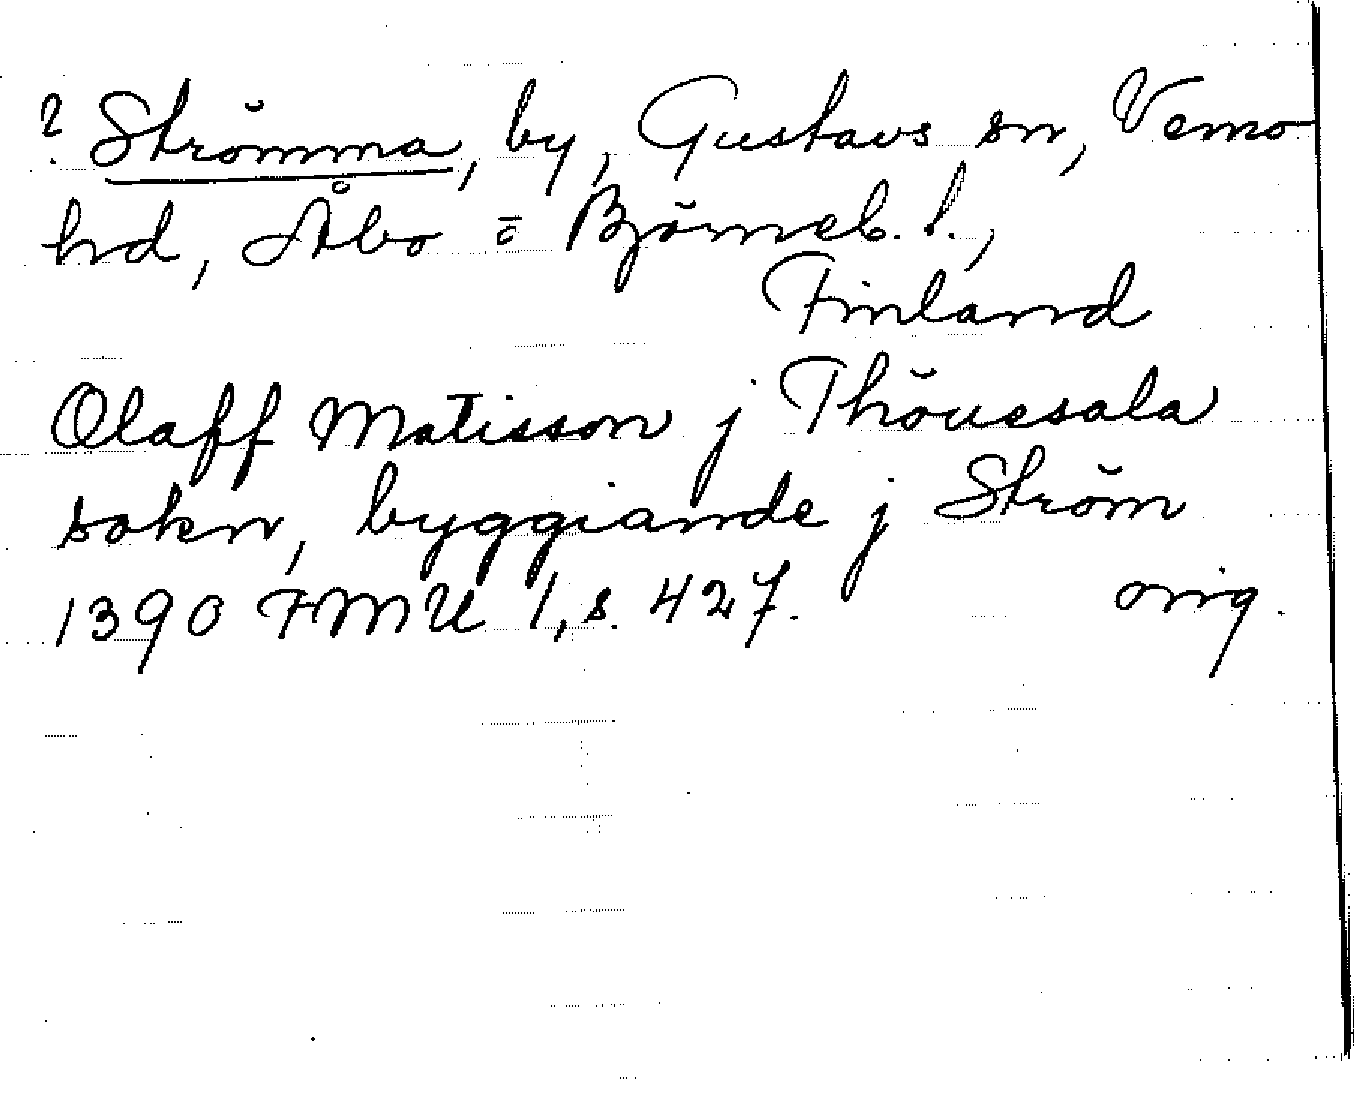 ? Strömma, by, Gustavs sn, Vemo
hd, Åbo o Björneb. l.,
Finland
Olaff Matisson j Thöuesala
sokn, byggiande j Ström
1390 FMU 1, s. 427. orig.